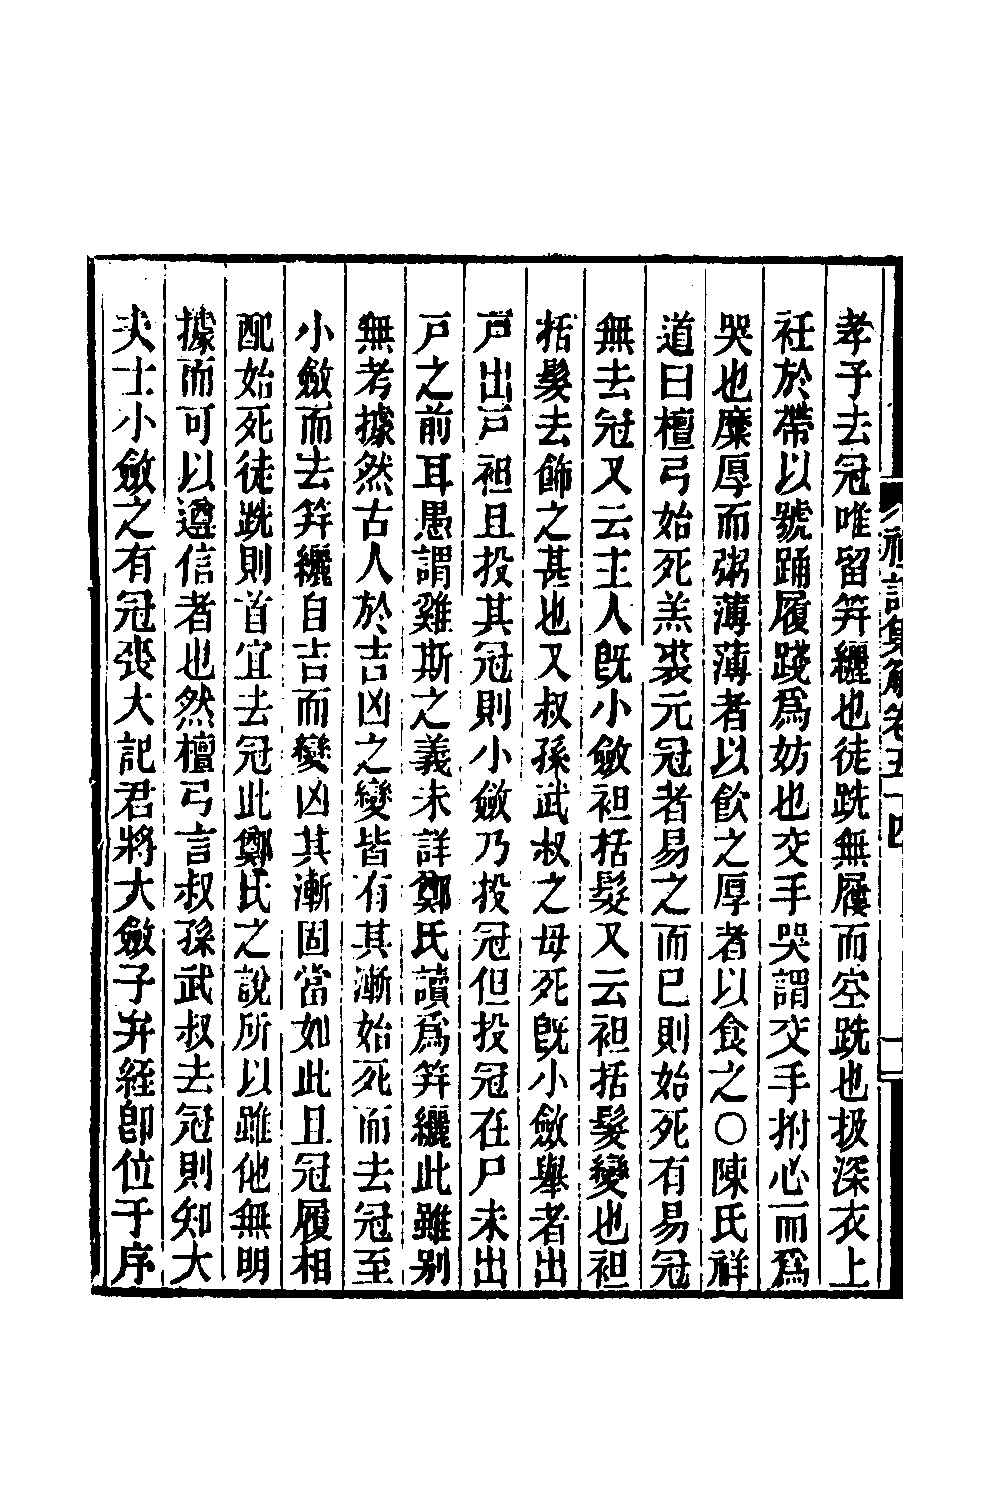 禮記集解卷五十四
孝子去冠唯留笄纚也徒跣無屨而空跣也扱深衣上
衽於帶以號踊履踐爲妨也交手哭謂交手拊心而爲
哭也糜厚而粥薄薄者以飲之厚者以食之〇陳氏祥
道曰檀弓始死羔裘元冠者易之而已則始死有易冠
無去冠又云主人旣小斂袒括髮又云袒括髮變也袒
括髮去飾之甚也又叔孫武叔之母死旣小斂舉者出
戸出戸袒且投其冠則小斂乃投冠但投冠在尸未出
戸之前耳愚謂雞斯之義未詳鄭氏讀爲笄纚此雖别
無考據然古人於吉凶之變皆有其漸始死而去冠至
小斂而去笄纚自吉而變凶其漸固當如此且冠履相
配始死徒跣則首宜去冠此鄭氏之說所以雖他無明
據而可以遵信者也然檀弓言叔孫武叔去冠則知大
夫士小斂之有冠喪大記君將大斂子弁絰卽位于序